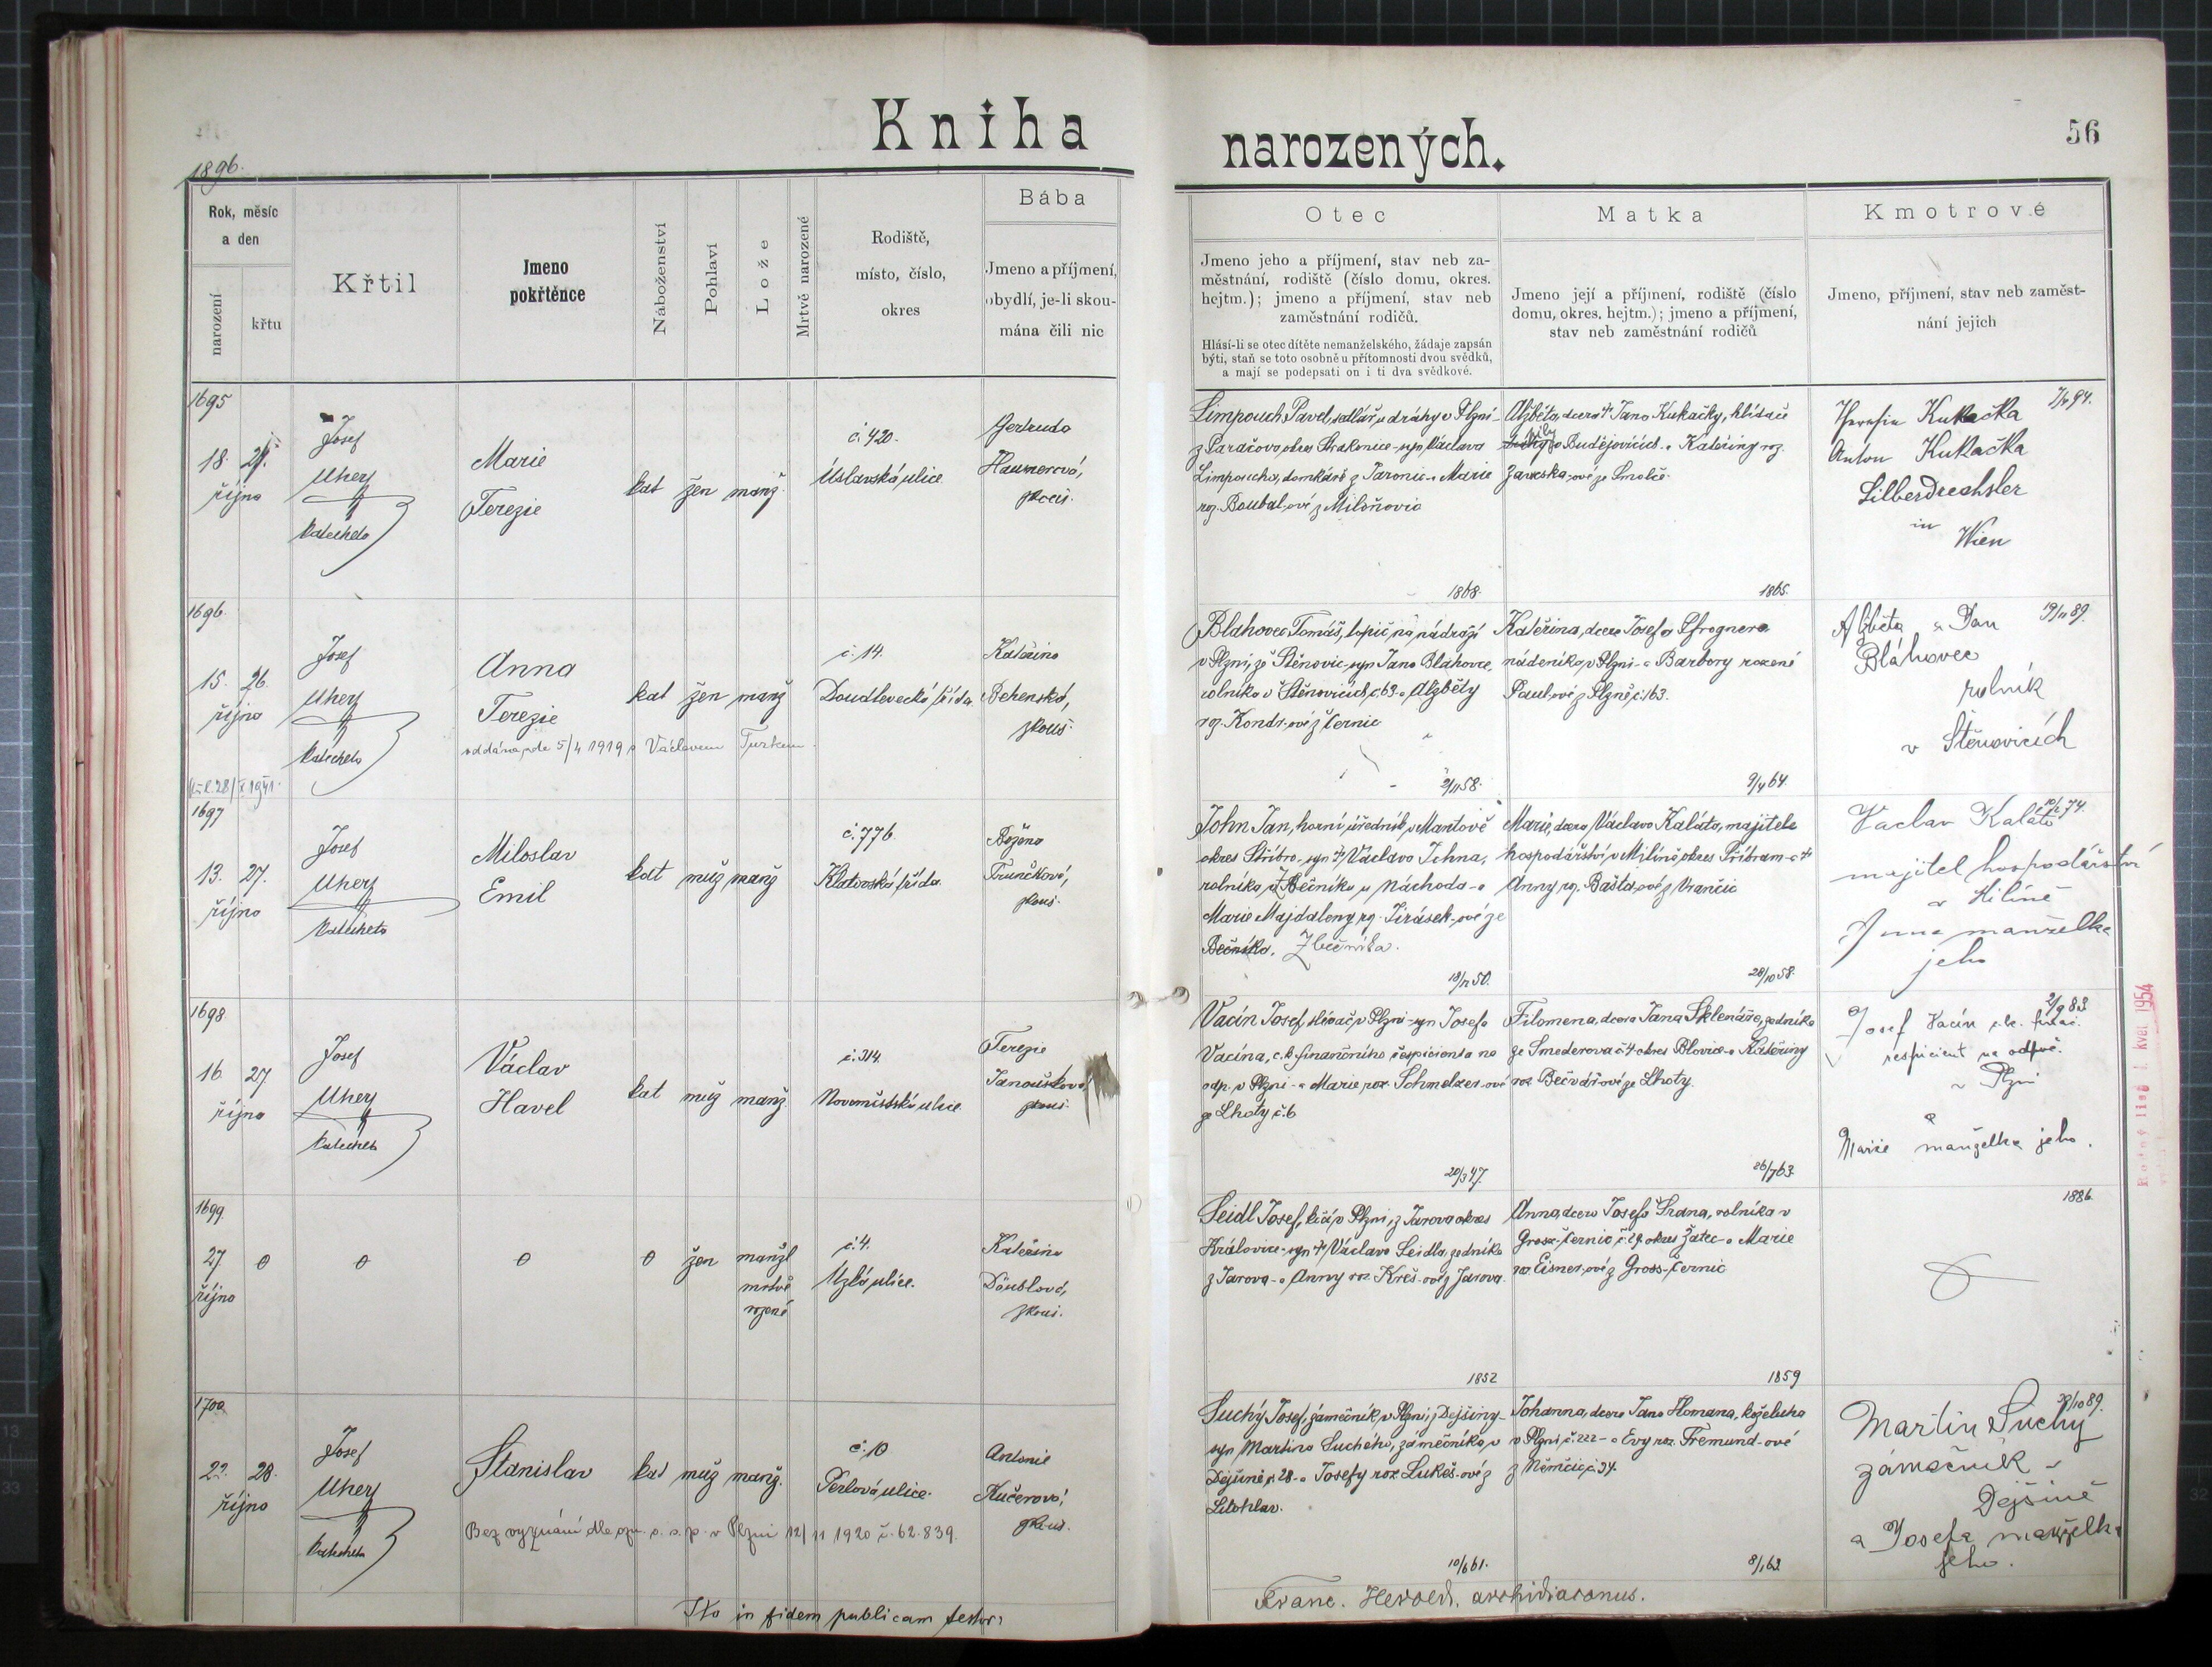 Kniha narozených.
56
1896.
Rok, měsíc
a den
narození
křtu
Křtil
Jmeno
pokřtěnce
Náboženství
Pohlaví
Lože
Mrtvě narozené
Rodiště,
místo, číslo,
okres
Bába
Jmeno a příjmení,
obydlí, je-li skou-
mána čili nic
Otec
Jmeno jeho a příjmení, stav neb za-
městnání, rodiště (číslo domu, okres.
hejtm.); jmeno a příjmení, stav neb
zaměstnání rodičů.
Hlásí-li se otec dítěte nemanželského, žádaje zapsán
býti, staň se toto osobně u přítomnosti dvou svědků,
a mají se podepsati on i ti dva svědkové.
Matka
Jmeno její a příjmení, rodiště (číslo
domu, okres, hejtm.); jmeno a příjmení,
stav neb zaměstnání rodičů
Kmotrové
Jmeno, příjmení, stav neb zaměst-
nání jejich
1695
18. 21.
října
Josef
Uherz
katecheta
Marie
Terezie
kat žen manž.
č. 420.
Úslavská ulice
Gertruda
Hausnerová,
zkouš.
Limpouch Pavel, sedlář u dráhy v Plzni-
z Paračova, okres Strakonice-syn Václava
Limpoucha, domkáře z Jaronic-a Marie
roz. Boubal-ové z Miloňovic
1868.
Alžběta, dcera † Jana Kukačky, hlídače
v Budějovicích-a Kateřiny roz.
ze Smolče.
1865.
Kukačka
Anton Kukačka
Silberdrechsler
in
Wien
1696.
15. 26.
října
Josef
Uherz
katecheta
Anna
Terezie
oddána dle 5/4 1919 s Václavem Turkem.
kat žen manž
č. 14.
Doudlevecká třída.
Kateřina
Behenská,
zkouš.
Blahovec Tomáš, topič na nádraží
v Plzni, ze Štěnovic-syn Jana Blahovce,
rolníka v Štěnovicích č. 63-a Alžběty
roz. Kondr-ové z Černic
2/11 58.
Kateřina, dcera Josefa Pfrognera
nádeníka v Plzni-a Barbory rozené
Paul-ové z Plzně č. 163.
9/4 64.
Alžběta a Jan 19/11 89.
Bláhovec
rolník
v Štěnovicích
1697
13. 27.
října
Josef
Uherz
katecheta
Miloslav
Emil
kat muž manž
č. 776.
Klatovská třída.
Božena
Trunčková,
zkouš.
John Jan, horní úředník v Mantově
okres Stříbro-syn † Václava Johna,
rolníka z Zbečníka u Náchoda-a
Marie Majdaleny roz. Jirásek-ové ze
Bečníka. Zbečníka.
18/12 50.
Marie, dcera Václava Kaláta, majitele
hospodářství v Milíně, okres Příbram-a †
Anny roz. Bašta-ové z Vrančic
28/10 58.
Vaclav Kalát
majitel hospodářství
v Milíně
Anna manželka
jeho
1698
16 27
října
Josef
Uherz
katecheta
Václav
Havel
kat muž manž.
č. 314.
Novoměstská ulice
Terezie
Janoušková,
zkouš.
Vacín Josef, slévač v Plzni-syn Josefa
Vacína, c.k. finančního respicienta na
odp. v Plzni-a Marie roz. Schmelzer-ové
ze Lhoty č. 6
20/3 47.
Filomena, dcera Jana Sklenáře, zedníka
ze Smederova č. 4 okres Blovice-a Kateřiny
roz. Bečvář-ové ze Lhoty.
26/7 63.
2/9 83
Josef Vacín c.k. finanč.
respicient na odpoč.
v Plzni
a
Marie manželka jeho.
Rodný list 1. kvet. 1954
1699.
27 0
října
0
0
0 žen manžl
mrtvě
rozené
č. 4.
Úzká ulice.
Kateřina
Däublová,
zkouš.
Seidl Josef, kočí v Plzni, z Jarova okres
Královice-syn † Václava Seidla, zedníka
z Jarova-a Anny roz. Kreš-ové z Jarova.
1852
Anna, dcera Josefa Srana, rolníka v
Gross-Černic č. 29. okres Žatec-a Marie
roz. Eisner-ové z Gross-Černic
1859
1886.
1700.
22. 28.
října
Josef
Uherz
katecheta
Stanislav
Bez vyznání dle ozn. o. s. p. v Plzni 12/11 1920 č. 62.839.
kat muž manž.
č. 10
Perlová ulice.
Antonie
Kučerová,
zkouš.
Suchý Josef, zámečník, v Plzni, z Dejšiny-
syn Martina Suchého, zámečníka, v
Dejšině č. 28-a Josefy roz. Lukeš-ové z
Litohlav.
10/6 61.
Johanna, dcera Jana Homana, koželuha
v Plzni, č. 222-a Evy roz. Fremund-ové
z Němčic č. 34.
8/1 63
Martin Suchý
zámečník v
Dejšině
a Josefa manželka
jeho.
Ita in fidem publicam testor:
Franc. Herold, archidiaconus.